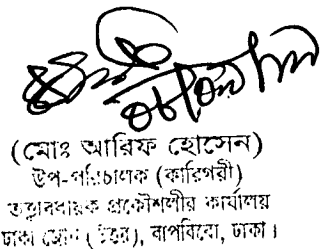 ০৮।০২।২১
(মোঃ আরিফ হোসেন)
উপ-পরিচালক (কারিগরী)
তত্ত্বাবধায়ক প্রকৌশলীর কার্যালয়
ঢাকা জোন (উত্তর), বাপবিবো, ঢাকা।